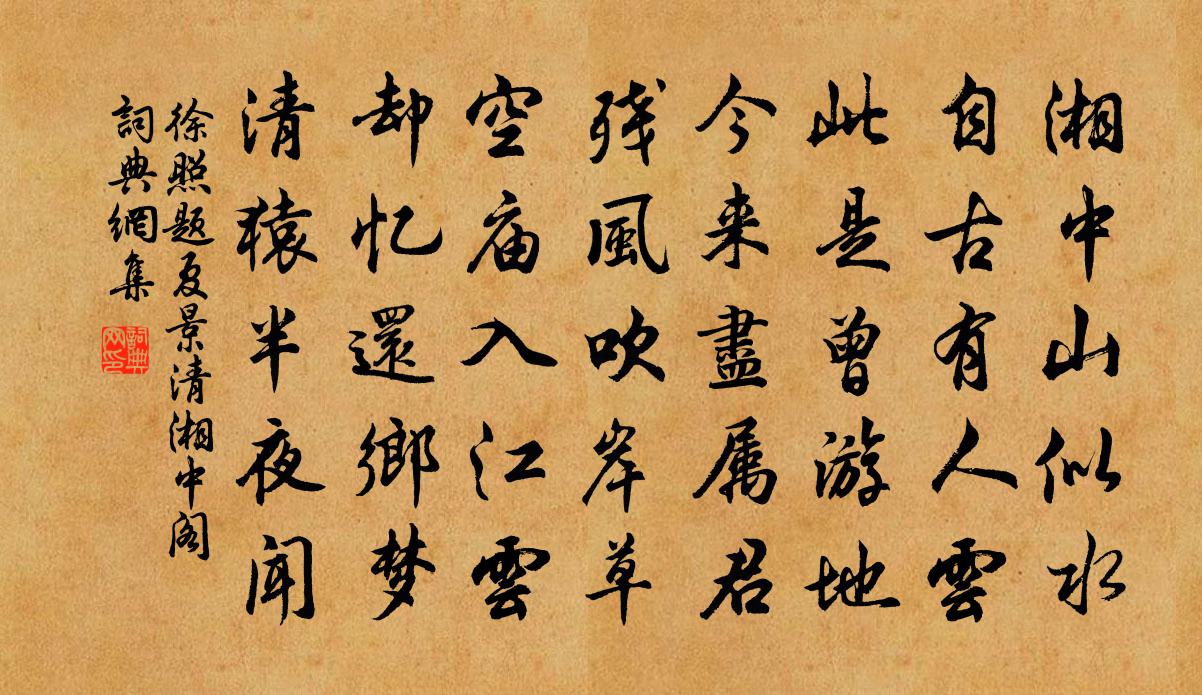 湘中山似水
自古有人雲
此是曾游地
今来盡属君
残風吹岸草
空庙入江雲
却忆還鄉梦
清猿半夜闻
徐照题夏景清湘中阁
詞典網集
詞典网印